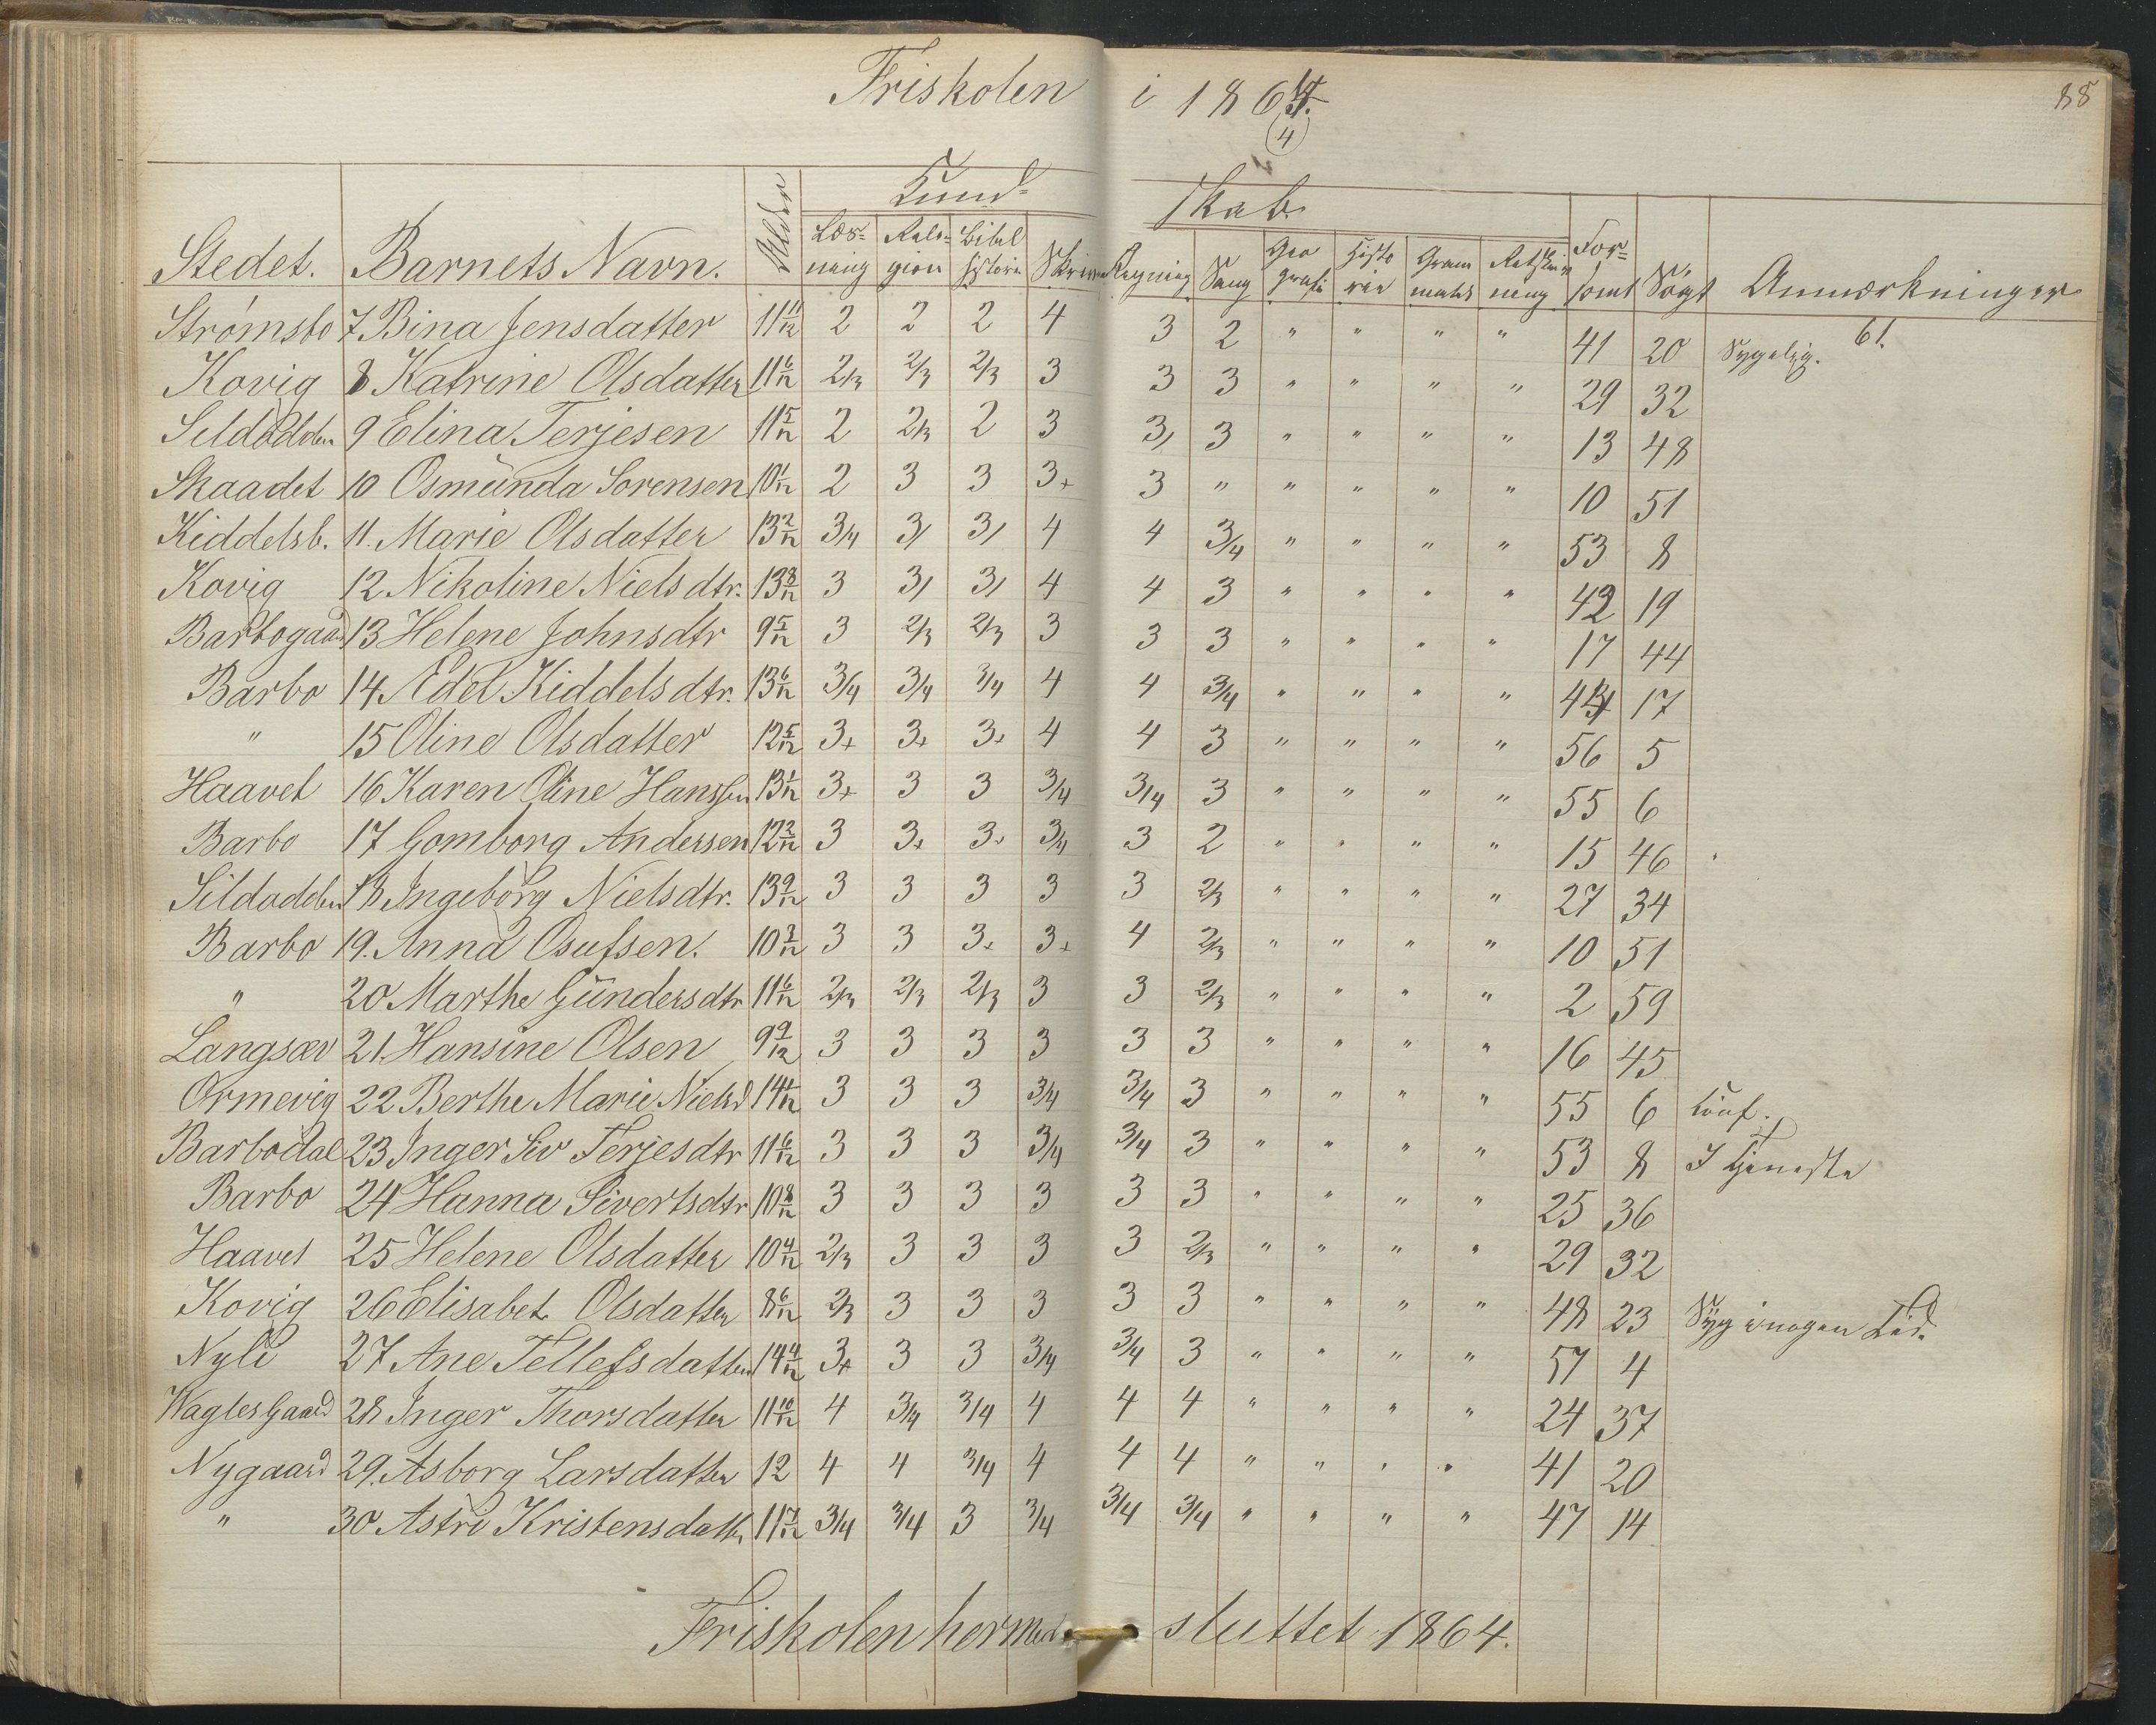 Friskolen i 1864.
(4)
88
Kund- skab.
Stedet. Barnets Navn. Alder Læs-ning Reli-gion Bibel historie Skrivn Regning Sang Geo grafi Histo rie Gram matik Retskriv ning For-sømt Søgt Anmærkninger
Strømsbo 7 Bina Jensdatter 11 11/12 2 2 2 4 3 2 " " " " 41 20 Sygelig. 61.
Kovig 8 Katrine Olsdatter 11 6/12 2/3 2/3 2/3 3 3 3 " " " " 29 32
Sildodden 9 Elina Terjesen 11 5/12 2 2/3 2 3 3/ 3 " " " " 13 48
Skaadet 10 Osmunda Sorensen 10 1/12 2 3 3 3+ 3 " " " " " 10 51
Kiddelsb. 11. Marie Olsdatter 13 2/12 3/4 3/ 3/ 4 4 3/4 " " " " 53 8
Kovig 12 Nikoline Nielsdtr. 13 8/12 3 3/ 3/ 4 4 3 " " " " 42 19
Barbogaard 13 Helene Johnsdtr 9 5/12 3 2/3 2/3 3 3 3 " " " " 17 44
Barbo 14 Edel Kiddelsdtr. 13 6/12 3/4 3/4 3/4 4 4 3/4 " " " " 44 17
" 15 Oline Olsdatter 12 5/12 3+ 3+ 3+ 4 4 3 " " " " 56 5
Haavet 16 Karen Oline Hanssen 13 1/12 3+ 3 3 3/4 3/4 3 " " " " 55 6
Barbo 17 Gomborg Andersen 12 2/12 3 3+ 3+ 3/4 3 2 " " " " 15 46
Sildodden 18 Ingeborg Nielsdtr. 13 9/12 3 3 3 3 3 2/3 " " " " 27 34
Barbo 19. Anna Osufsen. 10 3/12 3 3 3+ 3+ 4 2/3 " " " " 10 51
" 20 Marthe Gundersdtr 11 6/12 2/3 2/3 2/3 3 3 2/3 " " " " 2 59
Langsæv 21. Hansine Olsen 9 9/12 3 3 3 3 3 3 " " " " 16 45
Ormevig 22 Berthe Marie Nielsd 14 1/12 3 3 3 3/4 3/4 3 " " " " 55 6 Conf.
Barbodal 23 Inger Siv Terjesdtr 11 6/12 3 3 3 3/4 3/4 3 " " " " 53 8 I Tjeneste
Barbo 24 Hanna Sivertsdtr 10 8/12 3 3 3 3 3 3 " " " " 25 36
Haavet 25 Helene Olsdatter 10 4/12 2/3 3 3 3 3 2/3 " " " " 29 32
Kovig 26 Elisabet Olsdatter 8 6/12 2/3 3 3 3 3 3 " " " " 48 23 Syg i nogen Tid.
Nyli 27 Ane Tellefsdatter 14 4/12 3+ 3 3 3/4 3/4 3 " " " " 57 4
Waglesgaard 28 Inger Thorsdatter 11 10/12 4 3/4 3/4 4 4 4 " " " " 24 37
Nygaard 29. Asborg Larsdatter 12 4 4 3/4 4 4 4 " " " " 41 20
" 30 Astri Kristensdatter 11 7/12 3/4 3/4 3 3/4 3/4 3/4 " " " " 47 14
Friskolen hermed sluttet 1864.